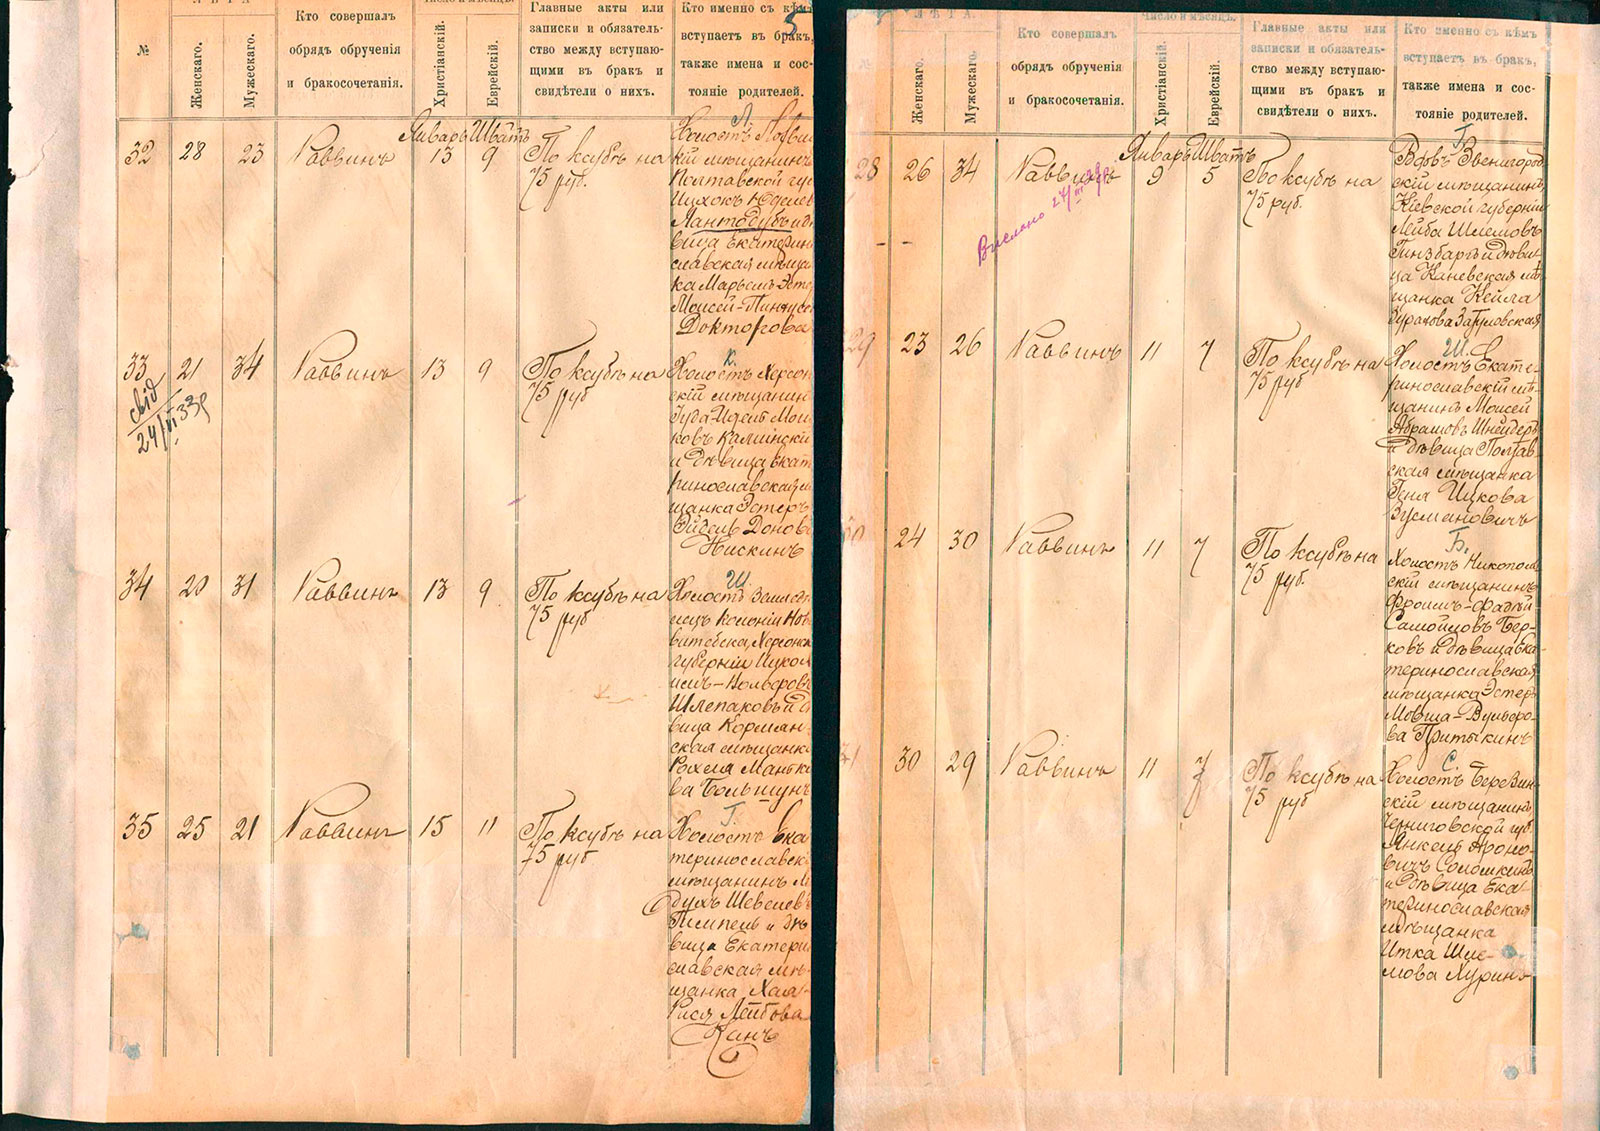 5
№
ЛѢТА
Женскаго.
Мужескаго.
Кто совершалъ
обрядъ обрученія
и бракосочетанія.
Число и мѣсяцъ.
Христіанскій.
Еврейскій.
Главные акты или
записки и обязатель-
ство между вступаю-
щими въ бракъ и
свидѣтели о нихъ.
Кто именно съ кѣмъ
вступаетъ въ бракъ,
также имена и сос-
тояніе родителей.
Январь Шватъ
32 28 23 Раввинъ 13 9
По ксубѣ на
75 руб.
Л.
Холостъ
кій мѣщанинъ
Полтавской гу
Ицхокъ
Лантодубъ и дѣ
вица Екатерин
славская мѣща
ка Марьямъ Эсте
Моисей-Пинхусо
Докторова
33 21 34 Раввинъ 13 9
свід
24/VI 33р
По ксубѣ на
75 руб
К.
Холостъ Херсон
скій мѣщанин
Гудя-Іцеля Мои
ковъ Калинскій
и дѣвица Екат
ринославская м
щанка Эстеръ
Эйдель Донова
Нискинъ
34 20 31 Раввинъ 13 9
По ксубѣ на
75 руб
Ш.
Холостъ Землед
лецъ колоніи Нов
витебска, Херсонс
губерніи Ицко
Вольфовъ
Шлепаковъ и д
вица Кормян
ская мѣщанк
Рохля
ва Большунъ
35 25 21 Раввинъ 15 11
По ксубѣ на
75 руб
Г.
Холостъ Ека
теринославск
мѣщанинъ М
духъ Шевелевъ
Гимпель и дѣ
вица Екатери
славская мѣ-
щанка Хая-
Рися Лейбова
Канъ
№
ЛѢТА.
Женскаго.
Мужескаго.
Кто совершалъ
обрядъ обрученія
и бракосочетанія.
Число и мѣсяцъ.
Христіанскій.
Еврейскій.
Главные акты или
записки и обязатель-
ство между вступаю-
щими въ бракъ и
свидѣтели о нихъ.
Кто именно съ кѣмъ
вступаетъ въ бракъ,
также имена и сос-
тояніе родителей.
Январь Шватъ
28 26 34 Раввинъ 9 5
По ксубѣ на
75 руб.
Г.
Вдовъ Звенигород
скій мѣщанинъ,
Кіевской губерніи
Лейба Шлемовъ
Гинзбаргъ и дѣви-
ца Каневская мѣ-
щанка Кейла
Затуловская
29 23 26 Раввинъ 11 7
По ксубѣ на
75 руб
Ш.
Холостъ Екате-
ринославскій мѣ-
щанинъ Моисей
Абрамовъ Шнейдеръ
и дѣвица Полтав-
ская мѣщанка
Геня Ицкова
Зусмановичъ
30 24 30 Раввинъ 11 7
По ксубѣ на
75 руб.
Б.
Холостъ Никополь
скій мѣщанинъ
Фроимъ-Фадѣй
Самойловъ Бер-
ковъ и дѣвица Ека-
теринославская
мѣщанка Эстеръ
Мовша-Вульфо-
ва Притыкинъ
31 30 29 Раввинъ 11 7
По ксубѣ на
75 руб
С.
Холостъ Березин-
скій мѣщанинъ
Черниговской губ.
Янкель Ароно-
вичъ Соломкинъ
и дѣвица Ека-
теринославская
мѣщанка
Итка Шле-
мова Лурин